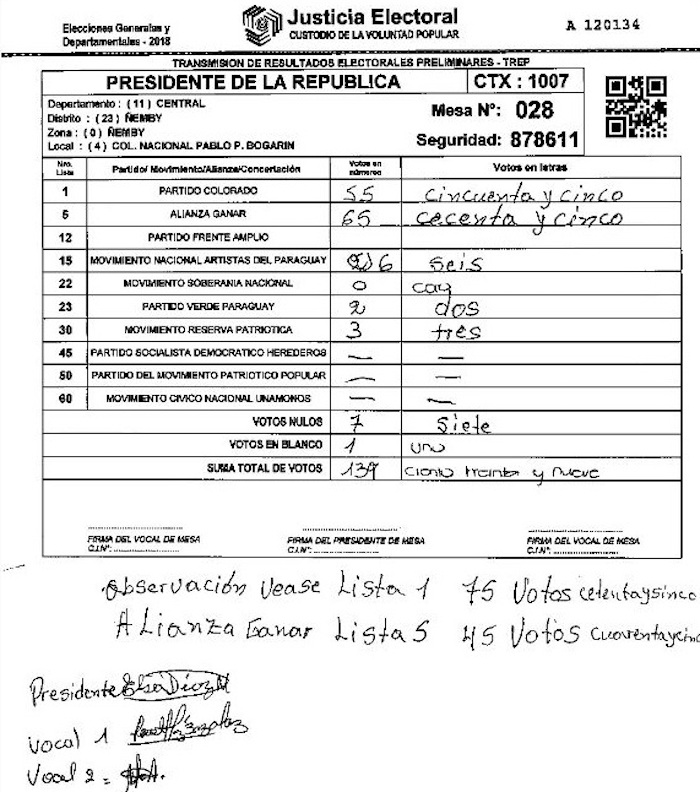 Elecciones Generales y
Departamentales - 2018
Justicia Electoral
CUSTODIO DE LA VOLUNTAD POPULAR
A 120134
TRANSMISION DE RESULTADOS ELECTORALES PRELIMINARES - TREP
PRESIDENTE DE LA REPUBLICA CTX : 1007
Departamento : ( 11 ) CENTRAL
Distrito : ( 23 ) ÑEMBY
Zona : ( 0 ) ÑEMBY
Local : ( 4 ) COL. NACIONAL PABLO P. BOGARIN
Mesa Nº: 028
Seguridad: 878611
Nro. Lista Partido/ Movimiento/Alianza/Concertación Votos en números Votos en letras
1 PARTIDO COLORADO 55 cincuenta y cinco
5 ALIANZA GANAR 65 cecenta y cinco
12 PARTIDO FRENTE AMPLIO
15 MOVIMIENTO NACIONAL ARTISTAS DEL PARAGUAY 6 seis
22 MOVIMIENTO SOBERANIA NACIONAL 0
23 PARTIDO VERDE PARAGUAY 2 dos
30 MOVIMIENTO RESERVA PATRIOTICA 3 tres
45 PARTIDO SOCIALISTA DEMOCRATICO HEREDEROS — —
50 PARTIDO DEL MOVIMIENTO PATRIOTICO POPULAR — —
60 MOVIMIENTO CIVICO NACIONAL UNAMONOS — —
VOTOS NULOS 7 Siete
VOTOS EN BLANCO 1 uno
SUMA TOTAL DE VOTOS 139 ciento treinta y nueve
FIRMA DEL VOCAL DE MESA FIRMA DEL PRESIDENTE DE MESA FIRMA DEL VOCAL DE MESA
C.I.Nº: C.I.Nº: C.I.Nº:
Observación Vease Lista 1 75 Votos cetentaysinco
Alianza Ganar Lista 5 45 Votos cuarentaycinc
Presidente Elsa Díaz
Vocal 1
Vocal 2 =